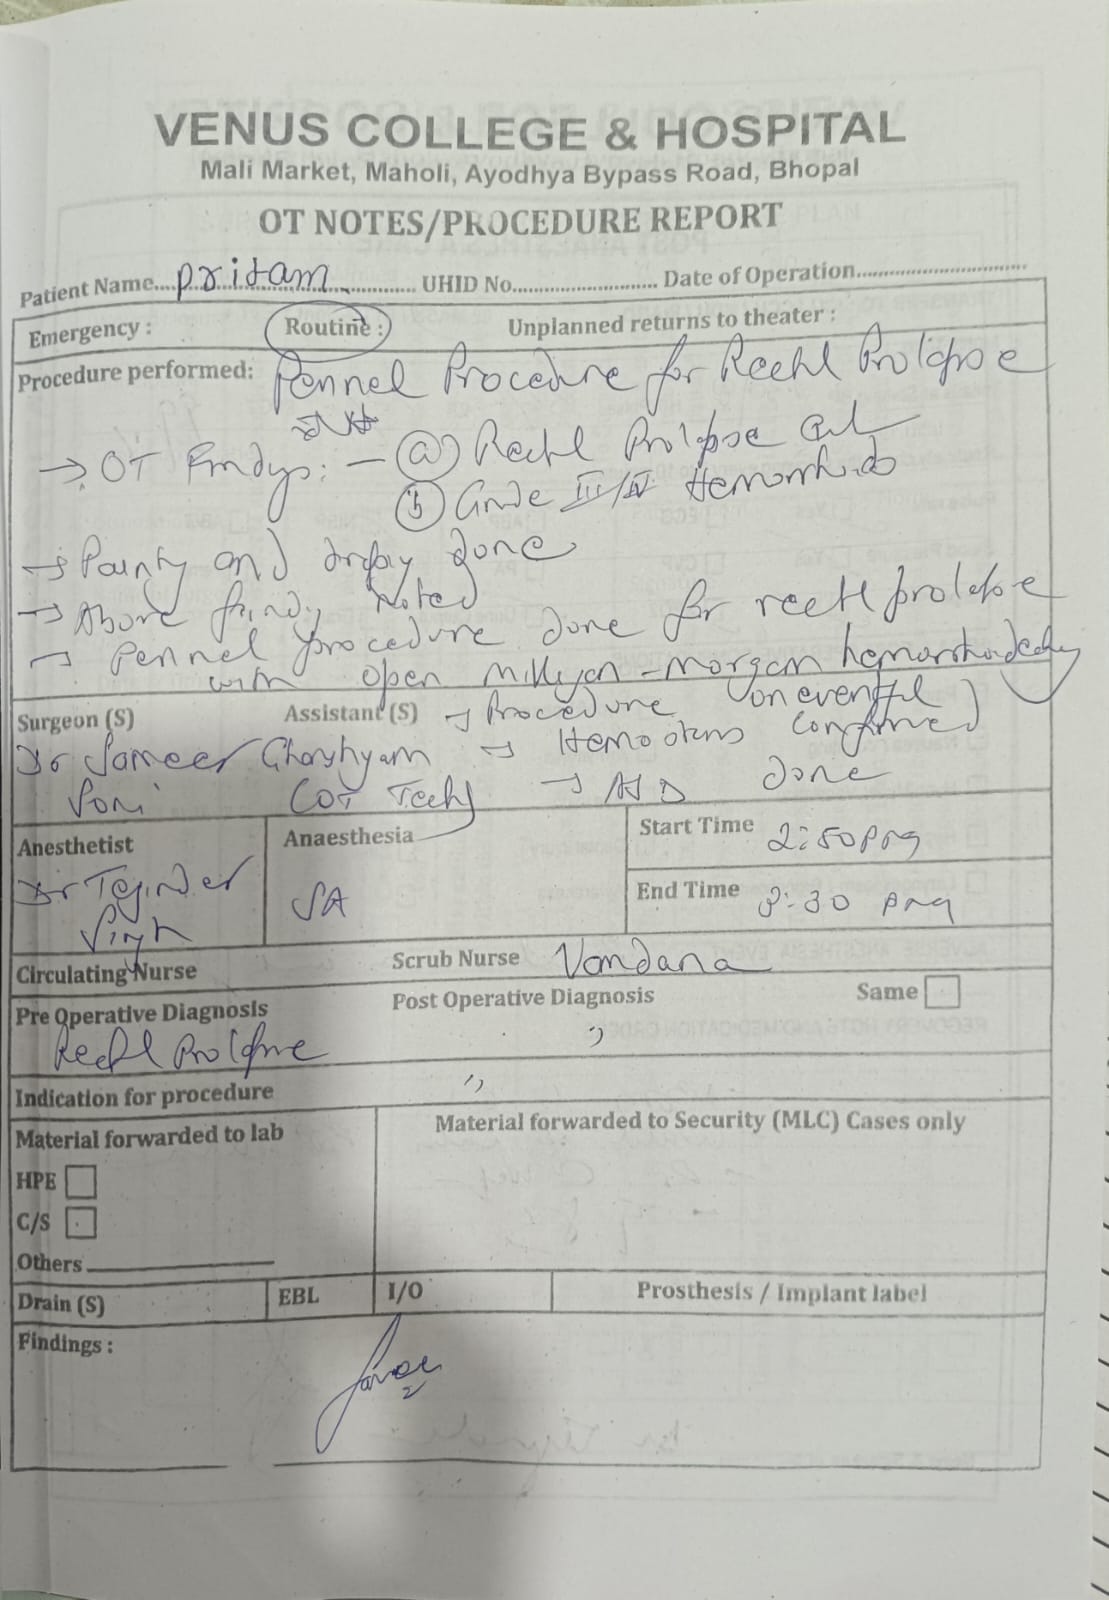 VENUS COLLEGE & HOSPITAL
Mali Market, Maholi, Ayodhya Bypass Road, Bhopal
OT NOTES/PROCEDURE REPORT
Patient Name....pritam............ UHID No.......................... Date of Operation..............................
Emergency : Routine : Unplanned returns to theater :
Procedure performed: Pennel Procedure for Rectl Prolapse
→ OT Findgs: - (a) Rectl Prolapse
(b) Grade III/IV Hemorrhoids
→ Painty and done
→ Above findg Noted
→ Pennel procedure done for rectl prolapse
with open Milligan-Morgan
Surgeon (S) Assistant (S) → Procedure uneventful
Dr Sameer Ghanshyam → Hemostasis confirmed
Soni (OT Tech) → ASD done
Anesthetist Anaesthesia Start Time 2:50 PM
Dr Tejinder SA End Time 3:30 PM
Singh
Circulating Nurse Scrub Nurse Vandana
Pre Operative Diagnosis Post Operative Diagnosis Same
Rectl Prolapse ,,
Indication for procedure ,,
Material forwarded to lab Material forwarded to Security (MLC) Cases only
HPE
C/S
Others
Drain (S) EBL I/O Prosthesis / Implant label
Findings :